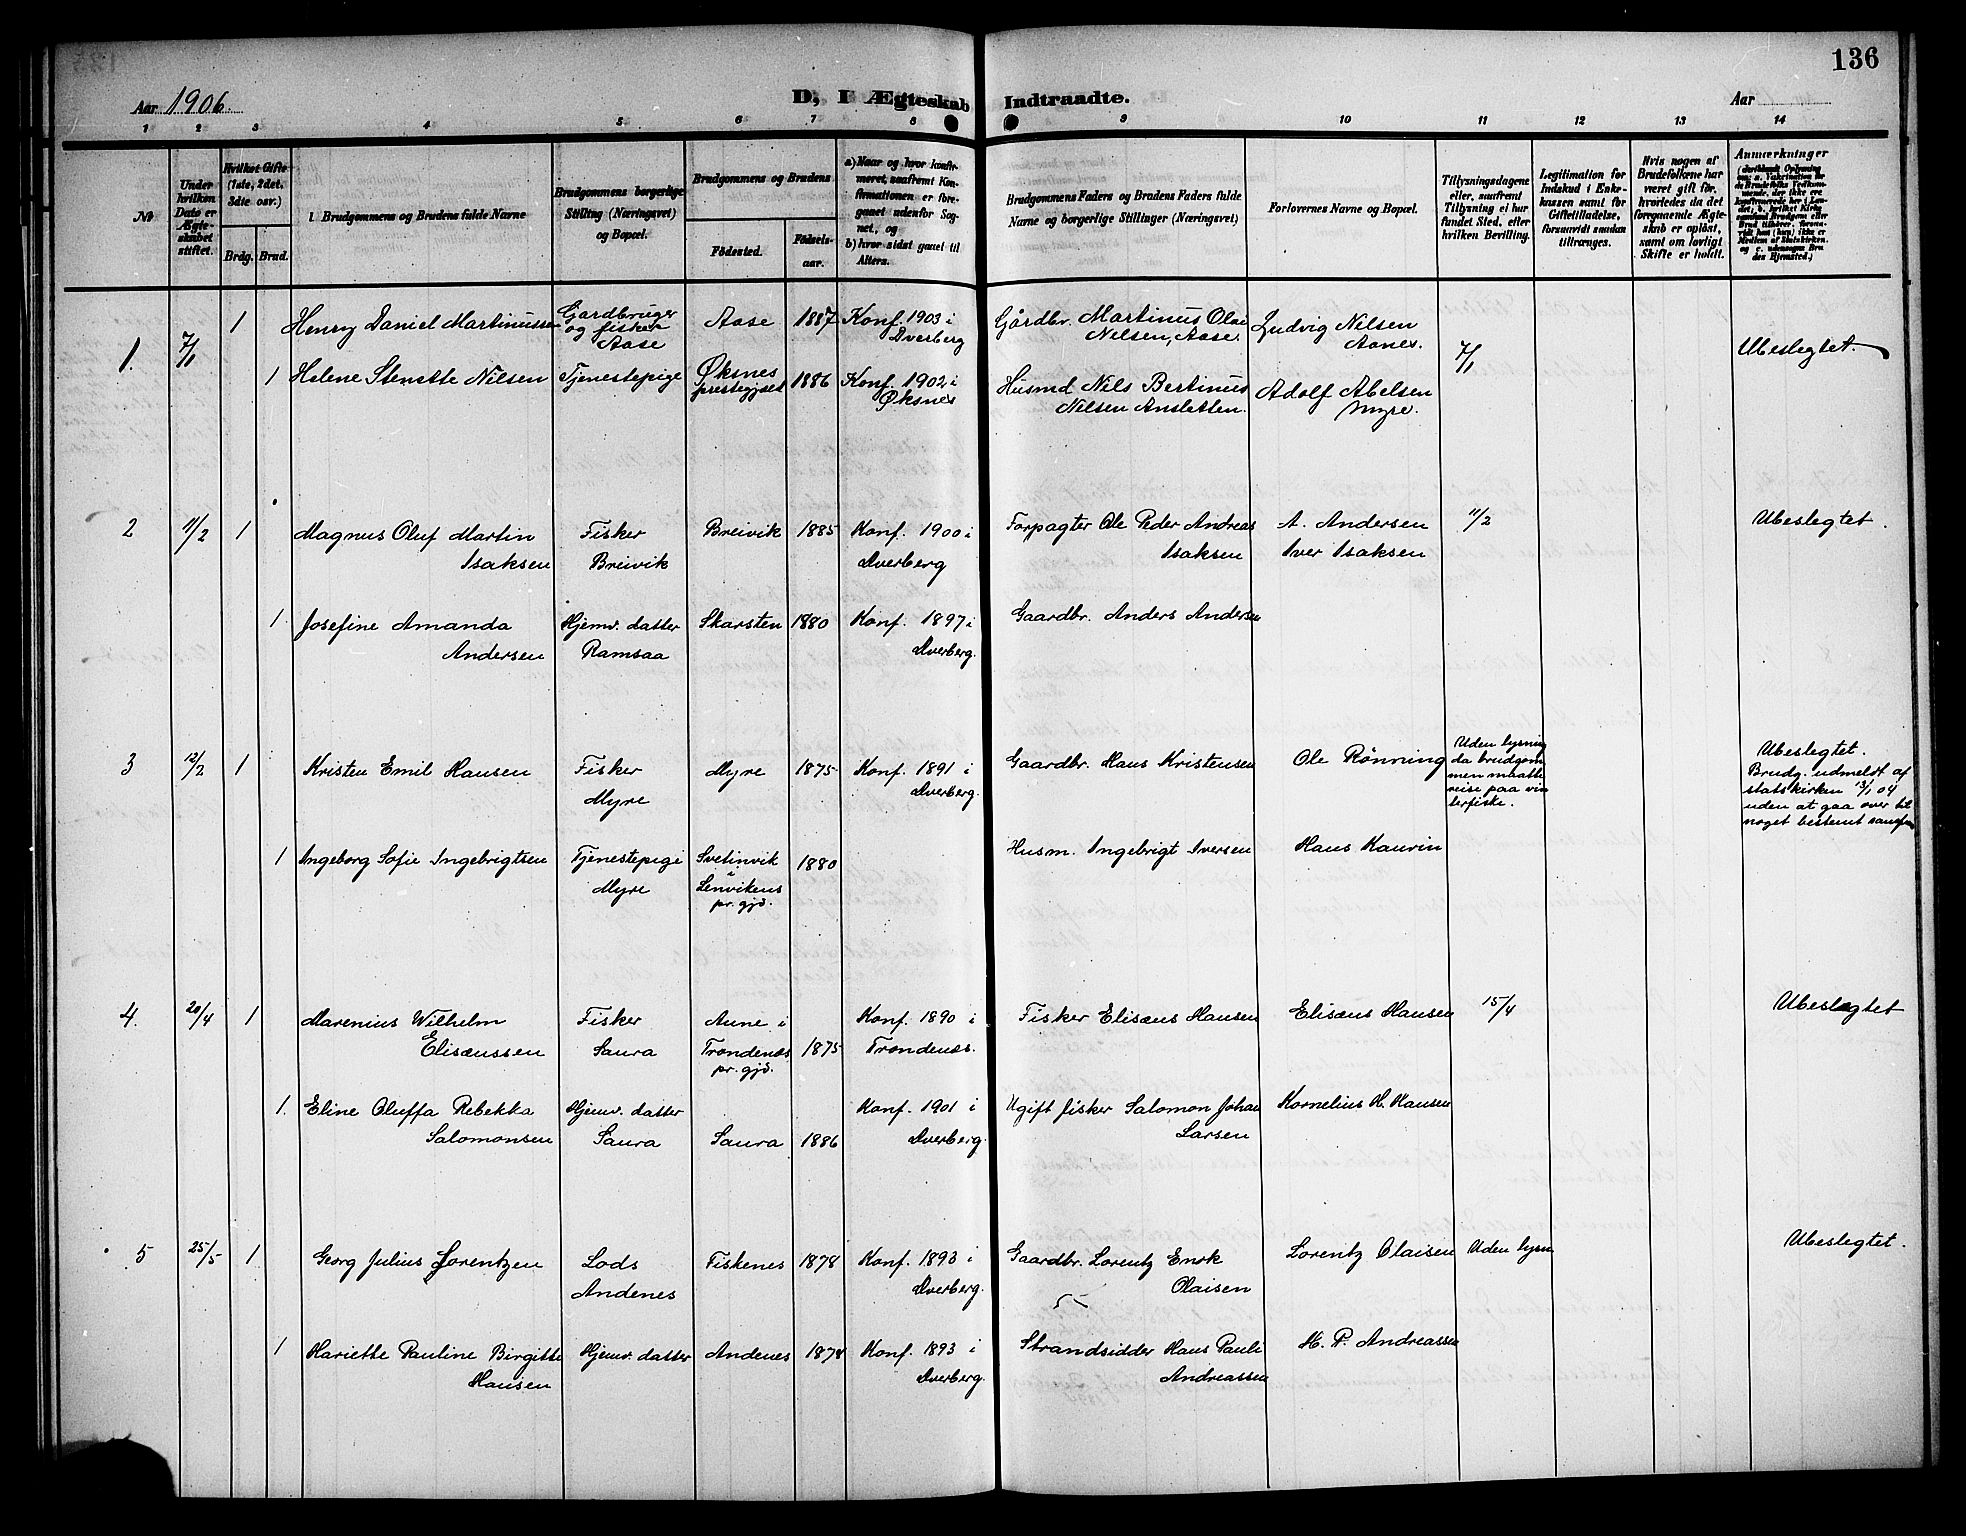 136
Aar 1906.
D, I Ægteskab Indtraadte.
Aar
1 2 3 4 5 6 7 8 9 10 11 12 13 14
No
Under hvilken Dato er Ægteskabet stiftet.
Hvilket Gifte (1ste, 2det. 3dte osv.)
Brdg. Brud.
1. Brudgommens og Brudens fulde Navne
Brudgommens borgerlige Stilling (Næringsvei) og Bopæl.
Brudgommens og Brudens
Födested.
Födselsaar.
a) Naar og hvor konfirmeret, saafremt Konfirmationen er foregaaet udenfor Sognet, og
b) hvor sidst gaaet til Alters.
Brudgommens Faders og Brudens Faders fulde Navne og borgerlige Stillinger (Næringsvei)
Forlovernes Navne og Bopæl.
Tillysningsdagene eller, saafremt Tillysning ei har fundet Sted, efter hvilken Bevilling.
Legitimation for Indskud i Enkekassen samt for Giftetilladelse, forsaavidt saadan tiltrænges.
Hvis nogen af Brudefolkene har været gift för, hvorledes da det foregaaende Ægteskab er oplöst, samt om lovligt Skifte er holdt.
Anmærkninger
1. 7/1 1 Henry Daniel Martinussen
Gardbruger og fisker Aase
Aase 1887 Konf. 1903 i Dverberg
Gårdbr. Martinus Olai Nilsen, Aase.
Ludvig Nilsen Aanes.
7/1
Ubeslegtet.
1 Helene Stenette Nilsen
Tjenestepige
Øksnes prestegjæl 1886 Konf. 1902 i Øksnes
Husmd Nils Bertinus Nilsen Ansletten.
Adolf Abelsen Myre.
2 11/2 1 Magnus Oluf Martin Isaksen
Fisker Breivik
Breivik 1885 Konf. 1900 i Dverberg
Forpagter Ole Peder Andreas Isaksen
A. Andersen
Iver Isaksen
11/2
Ubeslegtet.
1. Josefine Amanda Andersen
Hjemv. datter Ramsaa
Skarsten 1880 Konf. 1897 i Dverberg.
Gaardbr. Anders Andersen
3 12/2 1 Kristen Emil Hansen
Fisker Myre
Myre 1875 Konf. 1891 i Dverberg.
Gaardbr. Hans Kristensen
Ole Rønning
Uden lysning
da brudgom
men maatte
reise paa vin
terfiske.
Ubeslegtet.
Brudg. udmeldt af
statskirken 13/1 04
uden at gaa over til
noget bestemt samfun
1 Ingeborg Sofie Ingebrigtsen
Tjenestepige Myre
Svetinvik i Lenvikens pr. gjd. 1880
Husm. Ingebrigt Iversen
Hans Kaurin
4. 20/4 1 Marenius Wilhelm Elisæussen
Fisker Saura
Aune i Trondenæs pr. gjd. 1875 Konf. 1890 i Trondenæs.
Fisker Elisæus Hansen
Elisæus Hansen
15/4
Ubeslegtet
1. Eline Oluffa Rebekka Salomonsen
Hjemv. datter Saura
Saura 1886 Konf. 1901 i Dverberg.
Ugift fisker Salomon Johan Larsen
Kornelius H. Hansen
5 25/5 1 Georg Julius Lorentzen
Lods Andenes
Fiskenes 1878 Konf. 1893 i Dverberg.
Gaardbr. Lorentz Enok Olaisen
Lorentz Olaisen
Uden lysn
Ubeslegtet.
1 Hariette Pauline Birgitte Hansen
Hjemv. datter
Andenes 1878 Konf. 1893 i Dverberg.
Strandsidder Hans Pauli Andreassen
H. P. Andreassen